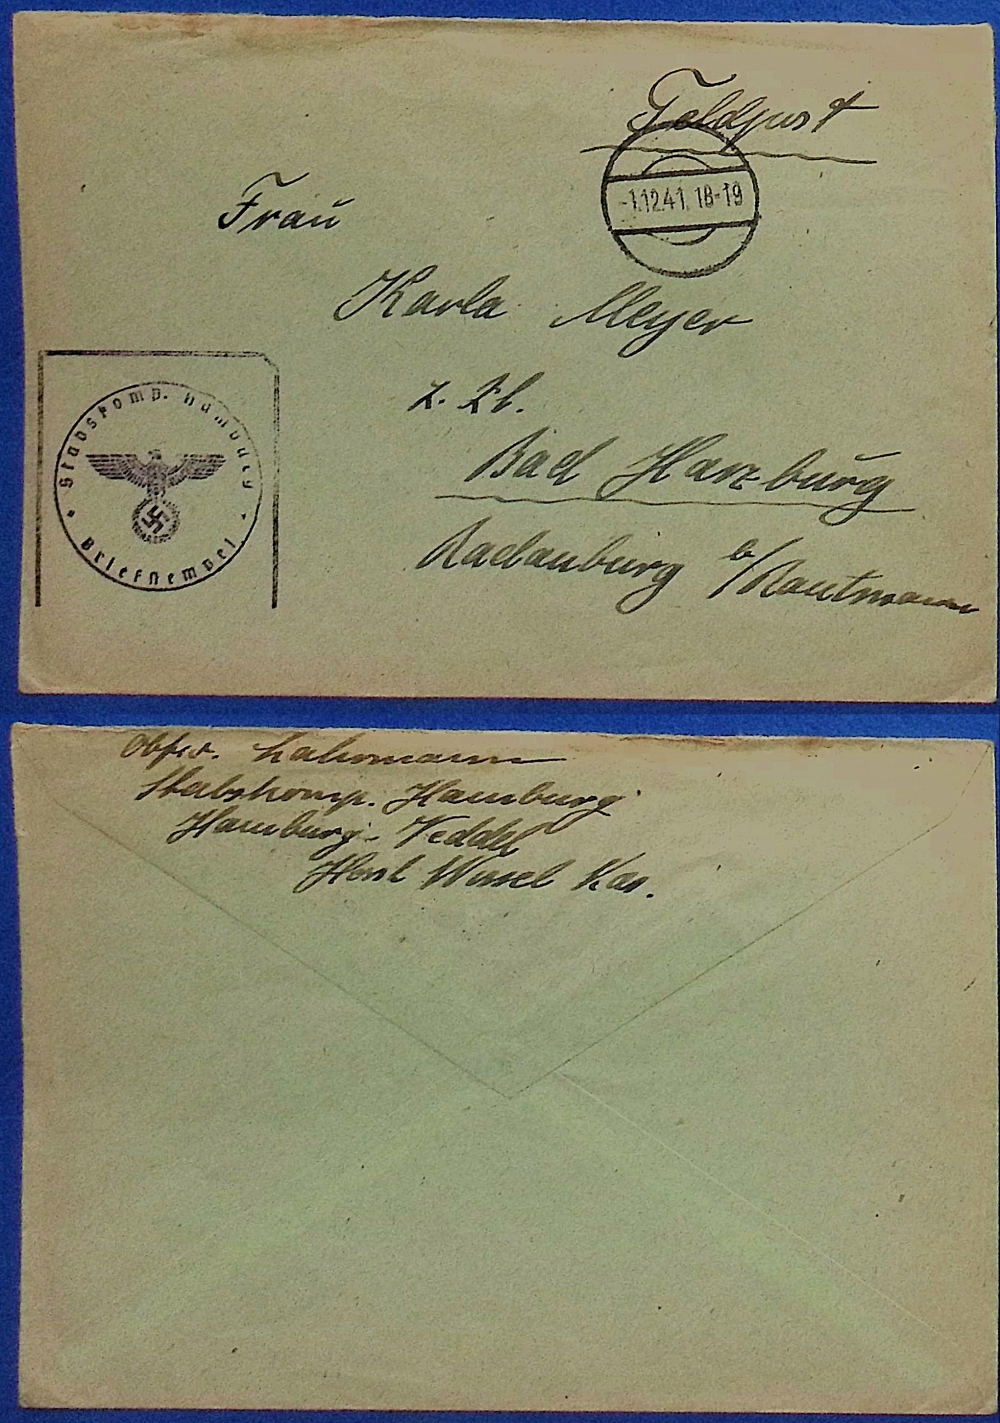 Feldpost
-1.12.41. 18-19
Frau
Karla Meyer
z. Zt.
Bad Harzburg
Radauburg b/Rautmann
Stabskomp. Hamburg
Briefstempel
Obfw. Lahrmann
Stabskomp. Hamburg
Hamburg-Veddel
Horst Wessel Kas.